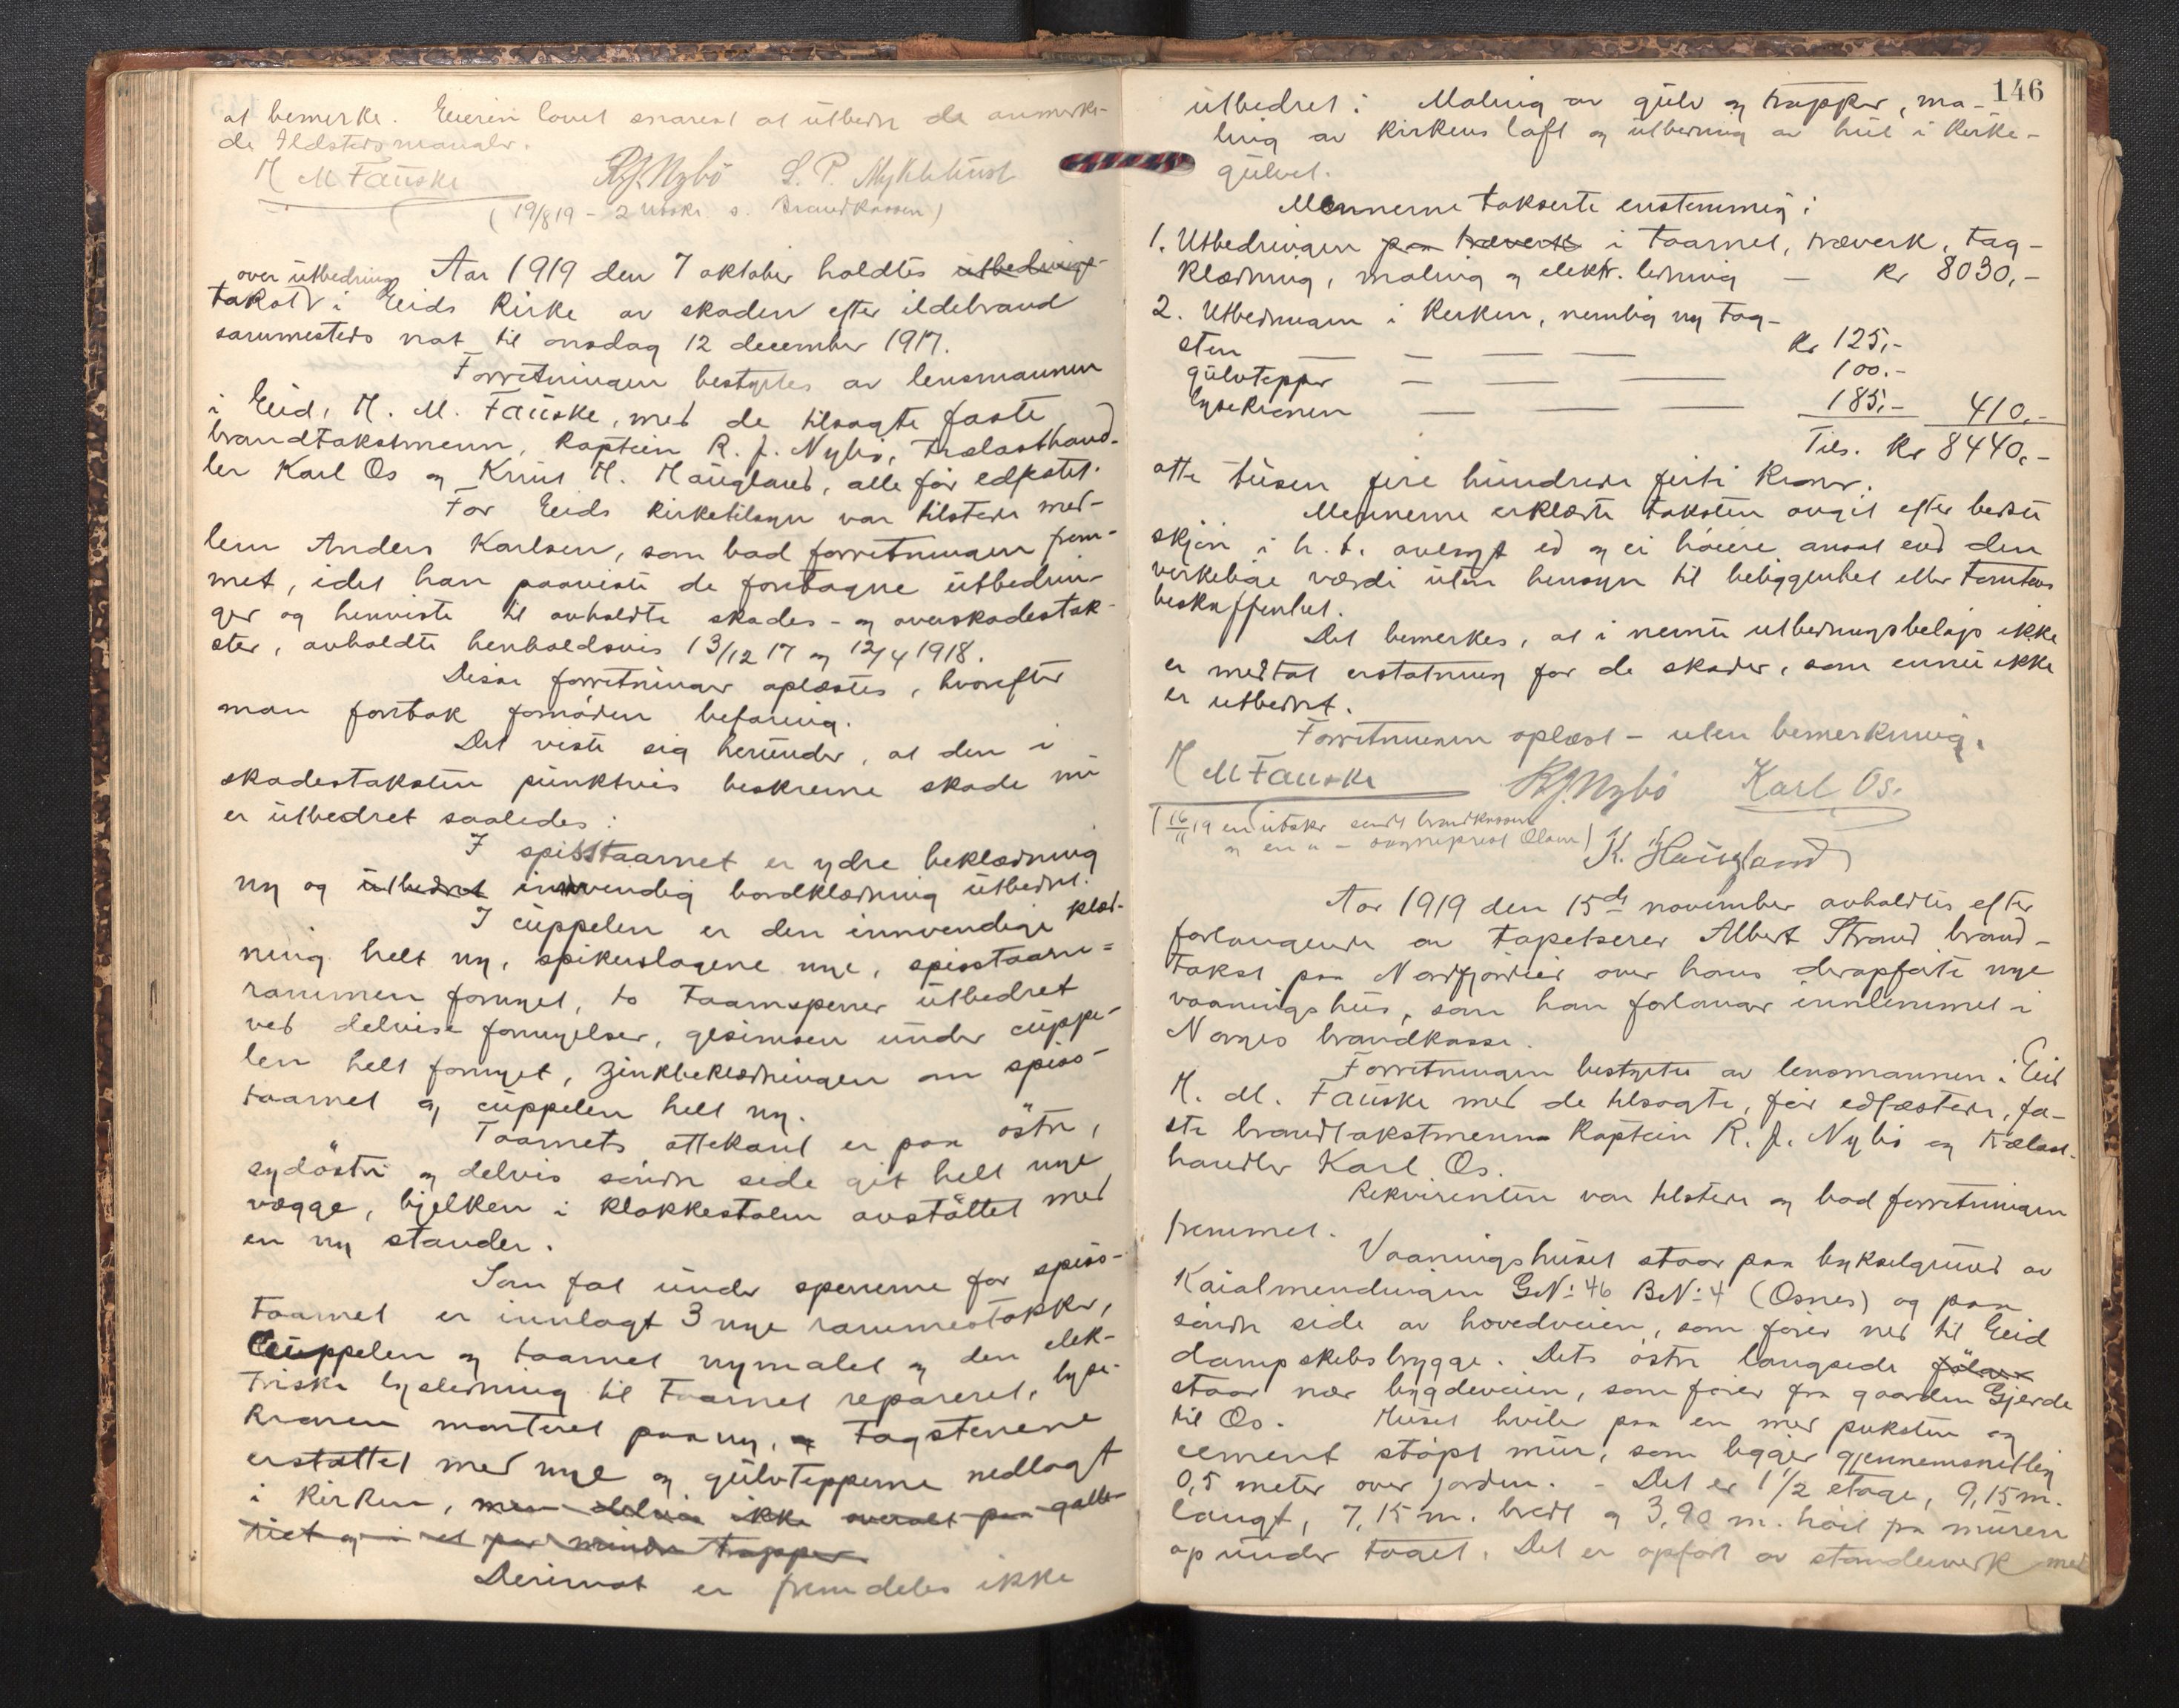 at bemerke. Eieren lovet snarest at utbedre de anmerke-
de Ildstedsmangler.
H M Fauske R.J. Nybö L. P. Myklebust
(19/8 19 - 2 utskr. s. Brandkassen)
over utbedring Aar 1919 den 7 oktober holdtes utbedrings-
takst i Eids Kirke av skaden efter ildebrand
sammesteds nat til onsdag 12 december 1917.
Forretningen bestyrtes av lensmannen
i Eid, H. M. Fauske, med de tilsagte faste
brandtakstmenn, Kaptein R. J. Nybö, Trælasthand-
ler Karl Os og Knut H. Haugland, alle før edfestet.
For Eids Kirketilsyn var tilstede med-
lem Anders Karlsen, som bad forretningen frem-
met, idet han paaviste de foretagne utbedrin-
ger og henviste til avholdte skades- og overskadestak-
ster, avholdte henholdsvis 13/12 17 og 12/4 1918.
Disse forretninger oplæstes, hvorefter
man foretok fornøden befaring.
Det viste sig herunder, at den i
skadestaksten punktvis beskrevne skade nu
er utbedret saaledes:
I spisstaarnet er ydre beklædning
ny og utbedret innvendig bordklædning utbedret.
I cuppelen er den innvendige klæd-
ning helt ny, spikerslagene nye, spisstaarn=
rammen fornyet, to Taarnsperrer utbedret
ved delvise fornyelser, gesimsen under cuppe-
len helt fornyet, Zinkbeklædningen om spiss-
taarnet og cuppelen helt ny.
Taarnets ottekant er paa östre,
sydöstre og delvis söndre side git helt nye
vægge, bjelken i Klokkestolen avstöttet med
en ny stander.
Som fot under sperrerne for spiss-
taarnet er innlagt 3 nye rammestokker,
Cuppelen og taarnet nymalet og den elek-
triske lysledning til Taarnet reparert, lyse-
kronen montert paany, og Tagstenene
erstattet med nye og gulvtepperne nedlagt
i Kirken, men delvis ikke overalt paa galle-
riet og i et par mindre trapper.
Derimot er fremdeles ikke
146
utbedret: Maling av gulv og trapper, ma-
ling av Kirkens loft og utbedring av hul i Kirke-
gulvet.
Mennerne takserte enstemmig:
1. Utbedringen paa træverk i Taarnet, træverk, tag-
klædning, maling og elektr. ledning — Kr 8030,-
2. Utbedringen i Kirken, nemlig ny Tag-
sten — — — — Kr 125,-
gulvtepper — — — 100.-
lysekronen — — — 185,- 410,-
Tils. Kr 8440,-
otte tusen fire hundrede firti Kroner.
Mennerne erklærte taksten avgit efter bedste
skjøn i h. t. avlagt ed og ei høiere ansat end den
virkelige værdi uten hensyn til beliggenhet eller tomtens
beskaffenhet.
Det bemerkes, at i nevnte utbedringsbeløp ikke
er medtat erstatning for de skader, som ennu ikke
er utbedret.
Forretningen oplæst - uten bemerkning.
H M Fauske R.J. Nybö Karl Os.
(16/11 19 en utskr sendt brandkassen
og en " - sogneprest Olsen) K. H. Haugland
Aar 1919 den 15de november avholdtes efter
forlangende av Tapetserer Albert Strand brand-
takst paa Nordfjordeid over hans deropførte nye
vaaningshus, som han forlanger innlemmet i
Norges brandkasse.
Forretningen bestyrtes av lensmannen i Eid
H. M. Fauske med de tilsagte, før edfæstede, fa-
ste brandtakstmenn Kaptein R. J. Nybö og trælast-
handler Karl Os.
Rekvirenten var tilstede og bad forretningen
fremmet.
Vaaningshuset staar paa bykselgrund av
Kaialmendingen G.N: 46 B.N: 4 (Osnes) og paa
söndre side av hovedveien, som fører ned til Eid
dampskibsbrygge. Dets östre langside følger
staar nær bygdeveien, som fører fra gaarden Gjerde
til Os. Huset hviler paa en med pukksten og
cement støpt mur, som ligger gjennemsnitlig
0,5 meter over jorden. - Det er 1 1/2 etage, 9,15 m.
langt, 7,15 m. bredt og 3,90 m. höit fra muren
op under taget. Det er opført av standerverk med